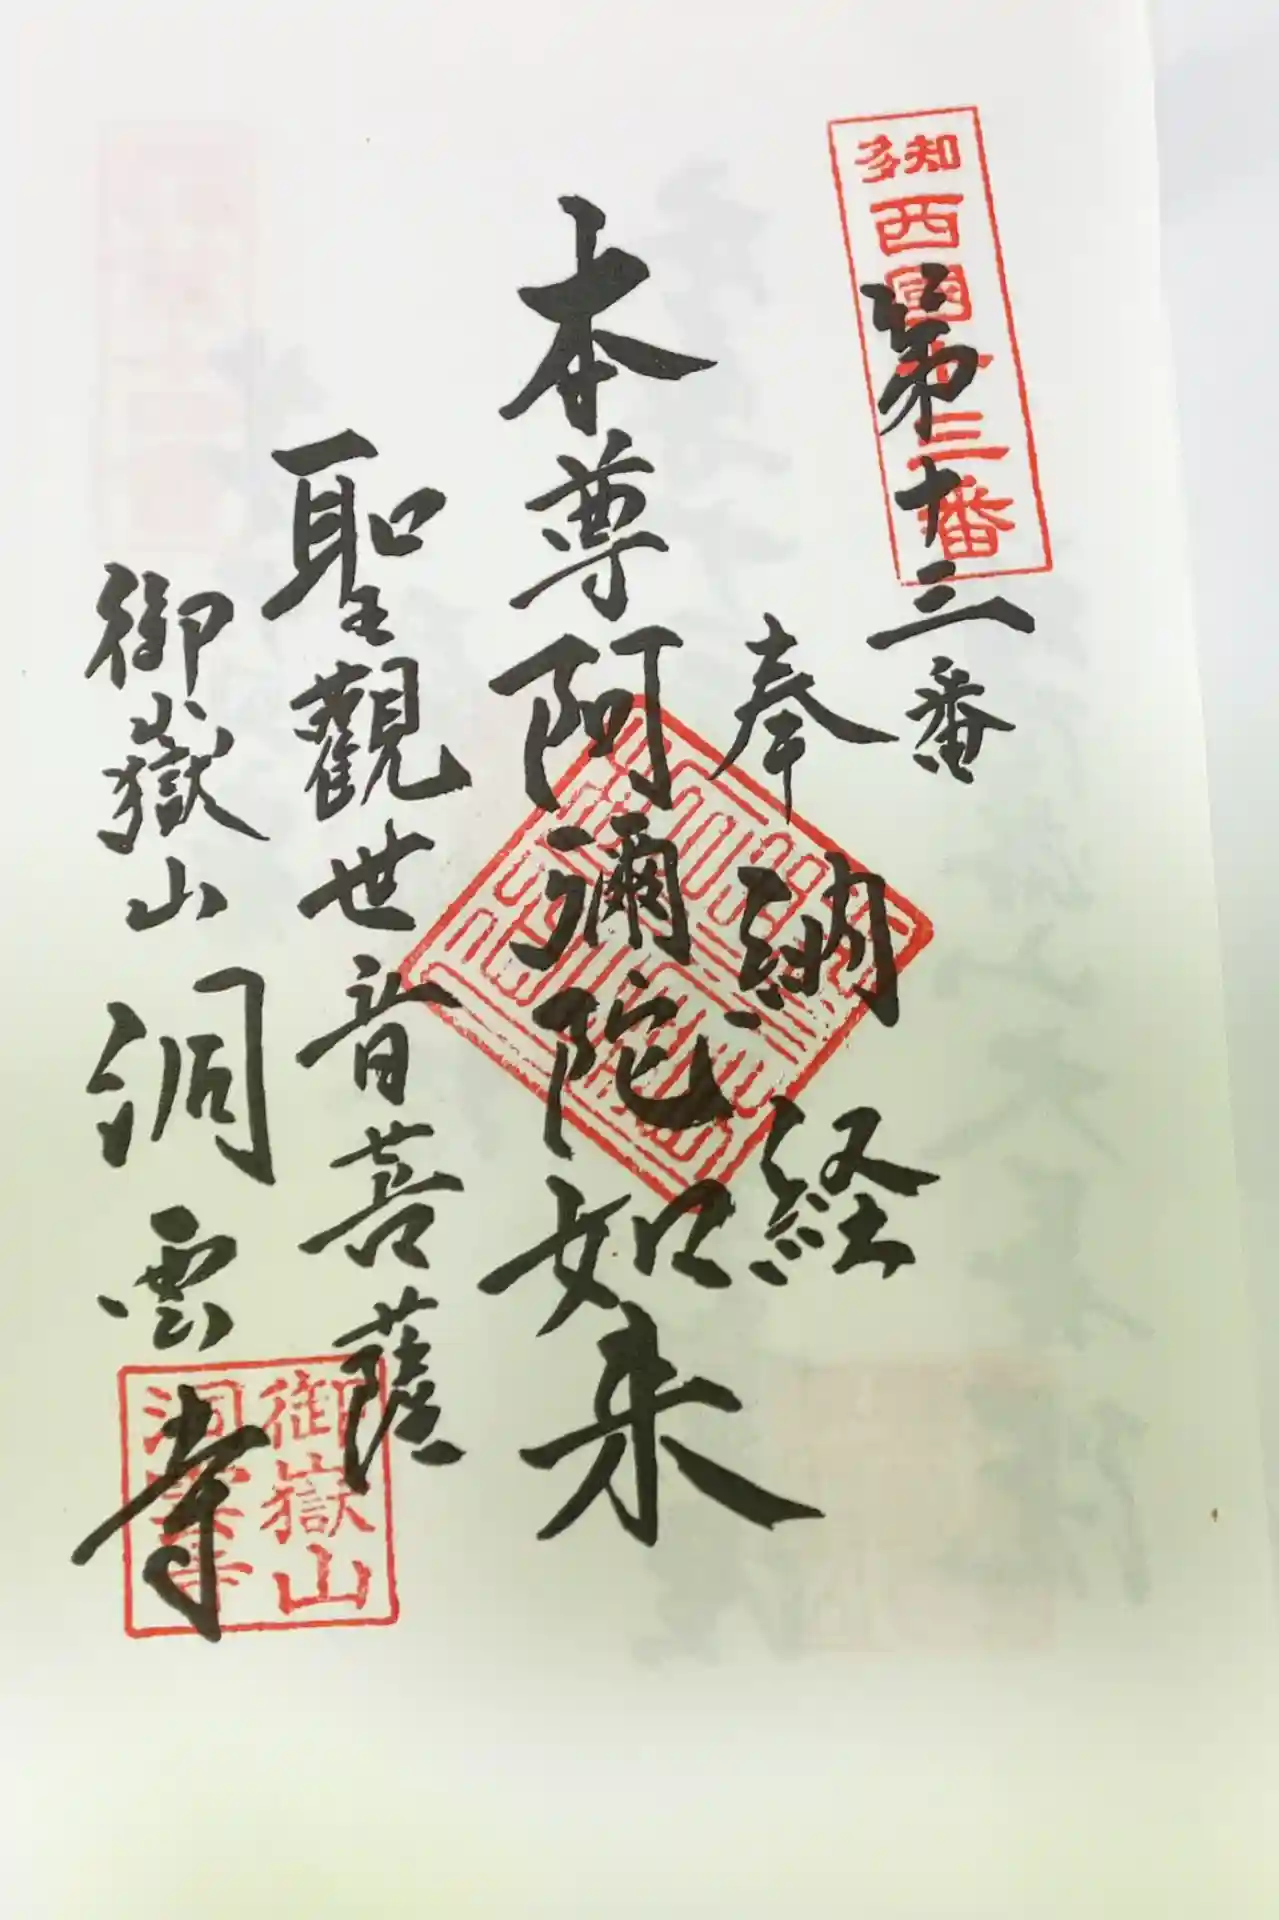 知多
西國十三番
第十三番
奉納経
本尊阿彌陀如来
聖觀世音菩薩
御嶽山洞雲寺
御嶽山
洞雲寺